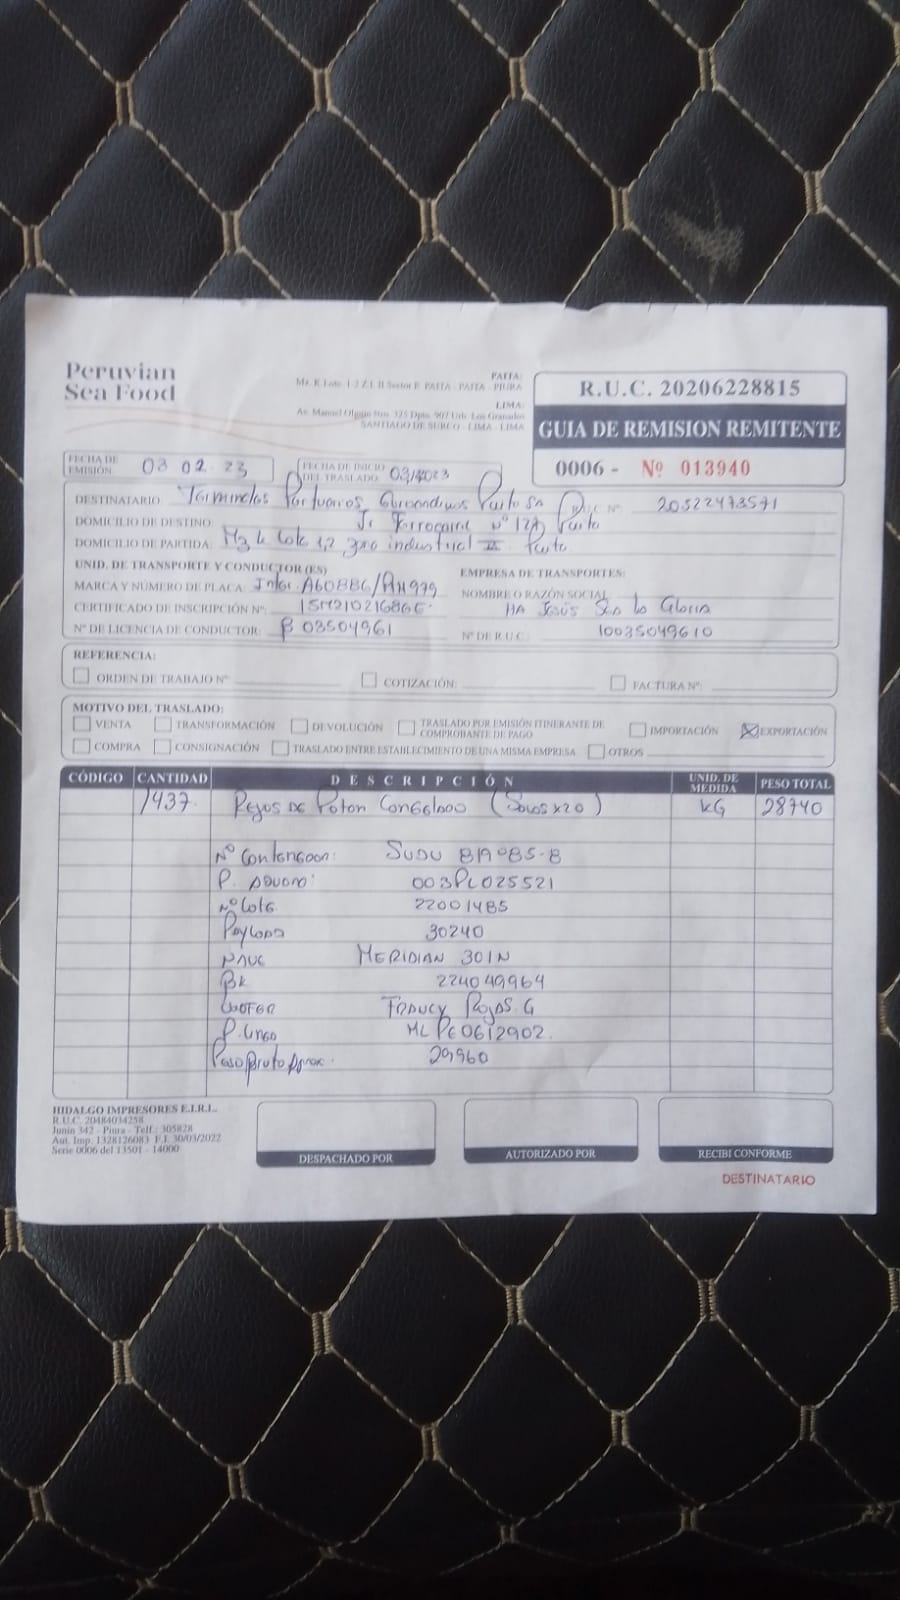 Peruvian
Sea Food
PAITA:
Mz. K Lote. 1-2 Z.I. II Sector E PAITA - PAITA - PIURA
LIMA:
Av. Manuel Olguin Nro. 325 Dpto. 907 Urb. Los Granados
SANTIAGO DE SURCO - LIMA - LIMA
R.U.C. 20206228815
GUIA DE REMISION REMITENTE
0006 - Nº 013940
FECHA DE EMISIÓN 03 02 23
FECHA DE INICIO DEL TRASLADO
DESTINATARIO: Portuarios Paita SA R.U.C. Nº 20522473571
DOMICILIO DE DESTINO: Jr Ferrocarril Nº 127 Paita
DOMICILIO DE PARTIDA: Mz k Lote 1,2 zona industrial II Paita
UNID. DE TRANSPORTE Y CONDUCTOR (ES)
EMPRESA DE TRANSPORTES:
MARCA Y NÚMERO DE PLACA: Inter. A60886/
NOMBRE O RAZÓN SOCIAL
CERTIFICADO DE INSCRIPCIÓN Nº:
HA Jesús Sea la Gloria
Nº DE LICENCIA DE CONDUCTOR: B 03504961
Nº DE R.U.C. 10035049610
REFERENCIA:
ORDEN DE TRABAJO Nº COTIZACIÓN: FACTURA Nº:
MOTIVO DEL TRASLADO:
VENTA TRANSFORMACIÓN DEVOLUCIÓN TRASLADO POR EMISIÓN ITINERANTE DE COMPROBANTE DE PAGO IMPORTACIÓN EXPORTACIÓN
COMPRA CONSIGNACIÓN TRASLADO ENTRE ESTABLECIMIENTO DE UNA MISMA EMPRESA OTROS
CÓDIGO CANTIDAD DESCRIPCIÓN UNID. DE MEDIDA PESO TOTAL
1437 Rejos de Poton Congelado (Sacos x 20) KG 28740
Nº Contenedor: SUDU 819085-8
P. Aduana: 003PL025521
Nº Lote 22001485
Payload 30240
Nave MERIDIAN 301N
BK 224049964
Chofer Rojas G
P. Linea ML PE0612902.
Peso Bruto Aprox. 29960
HIDALGO IMPRESORES E.I.R.L.
R.U.C. 20484034258
Junin 342 - Piura - Telf.: 305828
Aut. Imp. 1328126083 F.I. 30/03/2022
Serie 0006 del 13501 - 14000
DESPACHADO POR
AUTORIZADO POR
RECIBI CONFORME
DESTINATARIO